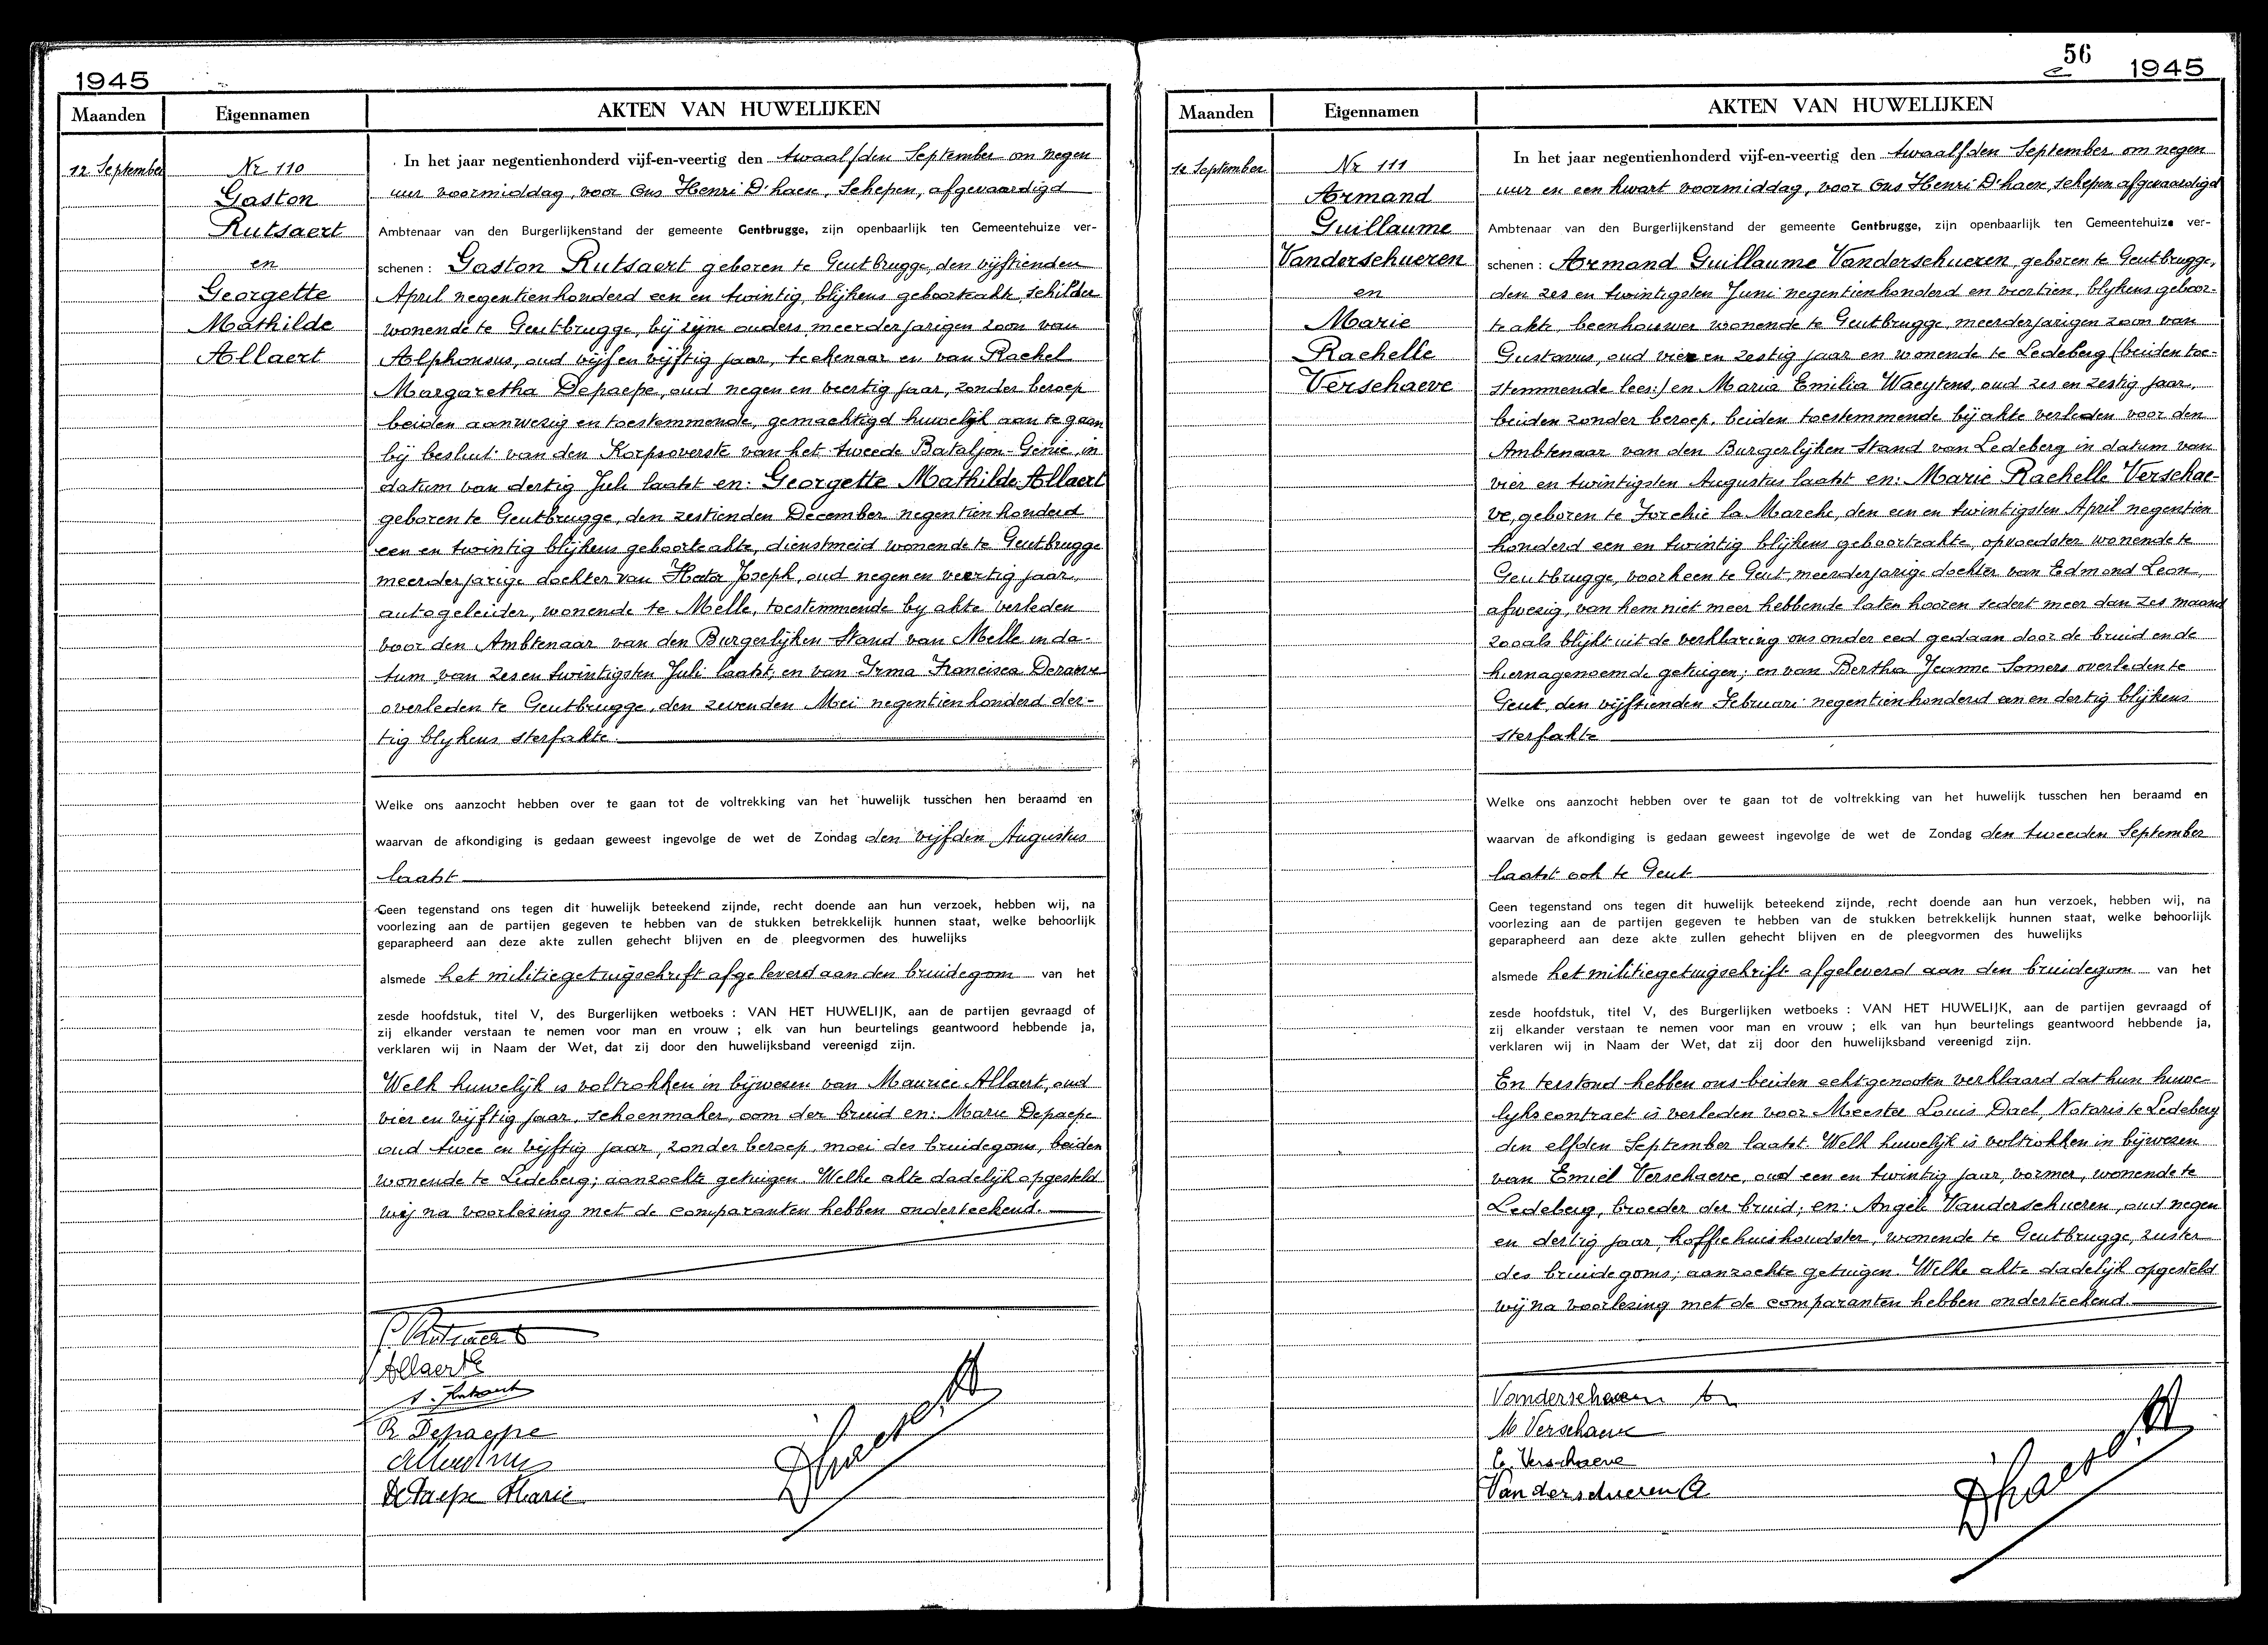 1945
Maanden Eigennamen AKTEN VAN HUWELIJKEN
12 September
Nr 110
Gaston
Rutsaert
en
Georgette
Mathilde
Allaert
In het jaar negentienhonderd vijf-en-veertig den twaalfden September om negen
uur voormiddag, voor Ons Henri D'haen, Schepen, afgevaardigd
Ambtenaar van den Burgerlijkenstand der gemeente Gentbrugge, zijn openbaarlijk ten Gemeentehuize ver-
schenen : Gaston Rutsaert geboren te Gentbrugge, den vijftienden
April negentienhonderd een en twintig, blijkens geboorteakte, schilder
wonende te Gentbrugge, bij zijne ouders, meerderjarigen zoon van
Alphonsus, oud vijf en vijftig jaar, teekenaar en van Rachel
Margaretha Depaepe, oud negen en veertig jaar, zonder beroep
beiden aanwezig en toestemmende, gemachtigd huwelijk aan te gaan
bij besluit van den Korpsoverste van het tweede Bataljon-Genie, in
datum van dertig Juli laatst en: Georgette Mathilde Allaert
geboren te Gentbrugge, den zestienden December negentienhonderd
een en twintig blijkens geboorteakte, dienstmeid wonende te Gentbrugge
meerderjarige dochter van Hector Joseph, oud negen en veertig jaar,
autogeleider, wonende te Melle, toestemmende by akte verleden
voor den Ambtenaar van den Burgerlijken Stand van Melle in da-
tum van zes en twintigsten Juli laatst, en van Irma Francisca
overleden te Gentbrugge, den zevenden Mei negentienhonderd der-
tig blykens sterfakte.
Welke ons aanzocht hebben over te gaan tot de voltrekking van het huwelijk tusschen hen beraamd en
waarvan de afkondiging is gedaan geweest ingevolge de wet de Zondag den vijfden Augustus
laatst
Geen tegenstand ons tegen dit huwelijk beteekend zijnde, recht doende aan hun verzoek, hebben wij, na
voorlezing aan de partijen gegeven te hebben van de stukken betrekkelijk hunnen staat, welke behoorlijk
geparapheerd aan deze akte zullen gehecht blijven en de pleegvormen des huwelijks
alsmede het militiegetuigschrift afgeleverd aan den bruidegom van het
zesde hoofdstuk, titel V, des Burgerlijken wetboeks : VAN HET HUWELIJK, aan de partijen gevraagd of
zij elkander verstaan te nemen voor man en vrouw ; elk van hun beurtelings geantwoord hebbende ja,
verklaren wij in Naam der Wet, dat zij door den huwelijksband vereenigd zijn.
Welk huwelijk is voltrokken in bijwezen van Maurice Allaert, oud
vier en vijftig jaar, schoenmaker, oom der bruid en: Marie Depaepe
oud twee en vijftig jaar, zonder beroep, moei des bruidegoms, beiden
wonende te Ledeberg; aanzochte getuigen. Welke akte dadelijk opgesteld
wij na voorlezing met de comparanten hebben onderteekend.
Allaert G
R Depaepe
De Paepe Marie
Dhaen H
56
1945
Maanden Eigennamen AKTEN VAN HUWELIJKEN
12 September
Nr 111
Armand
Guillaume
Vanderschueren
en
Marie
Rachelle
Verschaeve
In het jaar negentienhonderd vijf-en-veertig den twaalfden September om negen
uur en een kwart voormiddag, voor Ons Henri D'haen, schepen afgevaardigd
Ambtenaar van den Burgerlijkenstand der gemeente Gentbrugge, zijn openbaarlijk ten Gemeentehuize ver-
schenen : Armand Guillaume Vanderschueren, geboren te Gentbrugge,
den zes en twintigsten Juni negentienhonderd en veertien, blykens geboor-
te akte, beenhouwer wonende te Gentbrugge, meerderjarigen zoon van
Gustavus, oud vier en zestig jaar en wonende te Ledeberg (beiden toe-
stemmende lees:) en Maria Emilia Waeytens, oud zes en zestig jaar,
beiden zonder beroep, beiden toestemmende bij akte verleden voor den
Ambtenaar van den Burgerlijken Stand van Ledeberg in datum van
vier en twintigsten Augustus laatst en: Marie Rachelle Verschae-
ve, geboren te Forchie la Marche, den een en twintigsten April negentien
honderd een en twintig blijkens geboorteakte, opvoedster wonende te
Gentbrugge, voorheen te Gent, meerderjarige dochter van Edmond Leon,
afwezig, van hem niet meer hebbende laten hooren sedert meer dan zes maand
zooals blijkt uit de verklaring ons onder eed gedaan door de bruid en de
hiernagenoemde getuigen; en van Bertha Jeanne Somers overleden te
Gent, den vijftienden Februari negentienhonderd een en dertig blijkens
sterfakte
Welke ons aanzocht hebben over te gaan tot de voltrekking van het huwelijk tusschen hen beraamd en
waarvan de afkondiging is gedaan geweest ingevolge de wet de Zondag den tweeden September
laatst ook te Gent
Geen tegenstand ons tegen dit huwelijk beteekend zijnde, recht doende aan hun verzoek, hebben wij, na
voorlezing aan de partijen gegeven te hebben van de stukken betrekkelijk hunnen staat, welke behoorlijk
geparapheerd aan deze akte zullen gehecht blijven en de pleegvormen des huwelijks
alsmede het militiegetuigschrift afgeleverd aan den bruidegom van het
zesde hoofdstuk, titel V, des Burgerlijken wetboeks : VAN HET HUWELIJK, aan de partijen gevraagd of
zij elkander verstaan te nemen voor man en vrouw ; elk van hun beurtelings geantwoord hebbende ja,
verklaren wij in Naam der Wet, dat zij door den huwelijksband vereenigd zijn.
En terstond hebben ons beiden echtgenooten verklaard dat hun huwe-
lyks contract is verleden voor Meester Louis Dael, Notaris te Ledeberg
den elfden September laatst. Welk huwelijk is voltrokken in bijwezen
van Emiel Verschaeve, oud een en twintig jaar, vormer, wonende te
Ledeberg, broeder der bruid; en: Angèle Vanderschueren, oud negen
en dertig jaar, koffiehuishoudster, wonende te Gentbrugge, zuster
des bruidegoms; aanzochte getuigen. Welke akte dadelijk opgesteld
wij na voorlezing met de comparanten hebben onderteekend.
Vanderschueren
M Verschaeve
E. Verschaeve
Vanderschueren A
Dhaen H